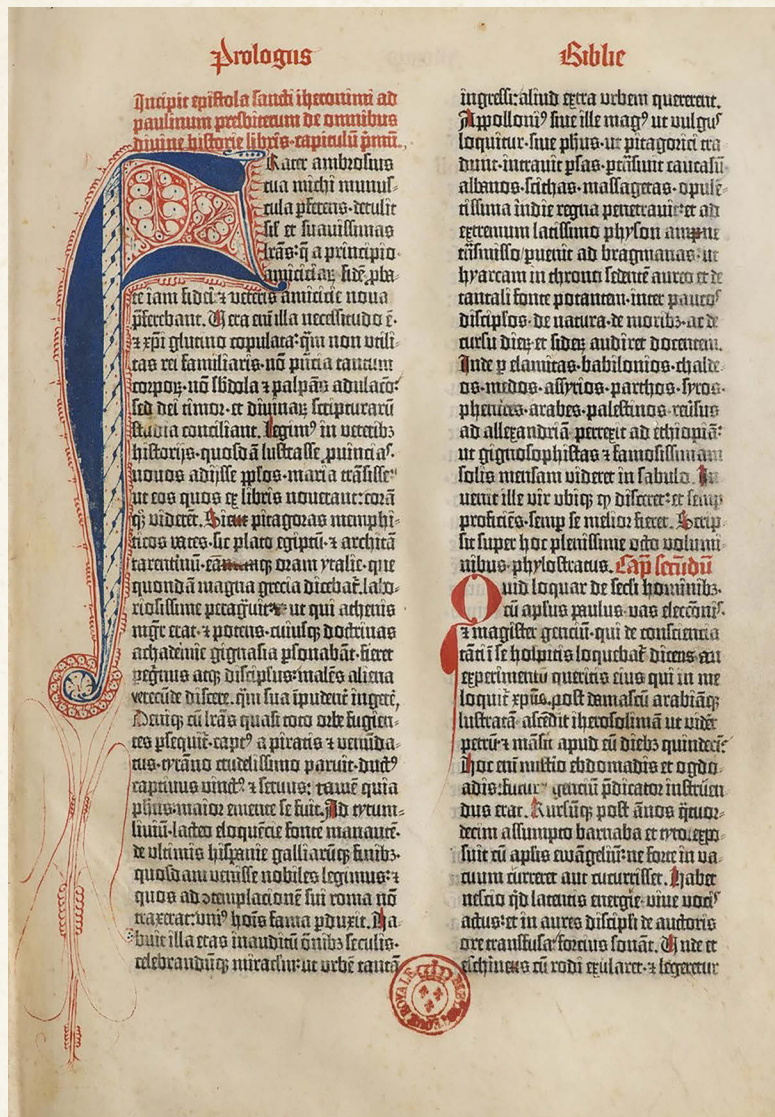 Prologus
Incipit epistola sancti iheronimi ad
paulinum presbiterum de omnibus
divine historie libris·capitulū p̄mū.
Frater ambrosius
tua michi munus-
cula p̄ferens·detulit
sil̄ et suavissimas
lrās:q̄ a principio
amiciciaꝝ fidē ꝓba-
te iam fidei ⁊ veteris amicicie nova
p̄ferebant. Vera enī illa necessitudo ē·
⁊ xpī glutino copulata:q̄m non utili-
tas rei familiaris·nō pn̄cia tantum
corpoꝝ·nō sb̄dola ⁊ palpāns adulaco:
sed dei timor·et divinaꝝ scripturarū
studia conciliant. Legimꝰ in veteribꝫ
historijs·quosdā lustrasse ꝓvincias·
novos adijsse pplos·maria trāsisse·
ut eos quos ex libris noverant:corā
qꝫ viderēt. Sicut pitagoras memphi-
ticos vates·sic plato egiptū·⁊ architā
tarentinū·eāmqꝫ oram ytalie·que
quondā magna grecia dicebat̄·labo-
riosissime peragrauit: ut qui athenis
mgr̄ erat·⁊ potens·cuiusqꝫ doctrinas
achademie gignasia ꝑsonabāt·fieret
peg̓nus atqꝫ discipl̄us·malēs aliena
verecūde discere·q̄m sua īpudent̄ ingerē,
Deniqꝫ cū lrās quasi toto orbe fugien-
tes ꝑsequit̄·captꝰ a piratis ⁊ venūda-
tus·tyrāno crudelissimo paruit·ductꝰ
captivus vinctꝰ ⁊ servus: tamē quia
ph̄us·maior emente se fuit. Ad tytum-
livium·lacteo eloquēcie fonte manantē·
de ultimis hispanie galliarūqꝫ finibꝫ·
quosdam venisse nobiles legimus:⁊
quos ad ꝯtemplacionē sui roma nō
traxerat:uniꝰ hoīs fama ꝑduxit. Ha-
buit illa etas inauditū ōnibꝫ seculis·
celebrandūqꝫ miraclm̄:ut urbē tantā
Biblie
ingressi:aliud extra urbem quererent.
Appolloniꝰ sive ille magꝰ ut vulgus
loquitur·sive ph̄us·ut pitagorici tra
dunt·intravit ꝑsas·ptn̄sivit caucasū
albanos·scithas·massagetas·opulē-
tissima indie regna penetravit:et ad
extremum latissimo physon ampne
trāsmisso ꝑvenit ad bragmanas·ut
hyarcam in throno sedentē aureo et de
tantali fonte potantem·inter paucoˢ
discipl̄os·de natura·de moribꝫ·ac de
cursu dieꝝ et sideꝝ audiret docentem.
Inde ꝑ elamitas·babilonios·chalde-
os·medos·assyrios·parthos·syros·
phenices·arabes·palestinos·rev̓sus
ad allexandriā·perrexit ad ethiopiā:
ut gignosophistas ⁊ famosissimam
solis mensam videret in sabulo. In
venit ille vir ubiqꝫ qꝫ disceret:et semꝑ
proficiēs·semꝑ se melior fieret. Scrip-
sit super hoc plenissime octo volumi-
nibus·phylostratus. Capm̄ secundū
Quid loquar de secli hominibꝫ·
cū apl̄us paulus·vas eleccōnis·
⁊ magister genciū·qui de consciencia
tāti ī se hospitis loquebat̄ dicens·an
experimentū queritis eius qui in me
loquit̄ xpūs·post damascū arabiāqꝫ
lustratā·ascēdit iherosolimā ut viderꝫ
petrū·⁊ mansit apud eū diebꝫ quindecī:
Hoc enī misterio ebdomadis et ogdo-
adis:futur̓ genciū p̄dicator instruen-
dus erat. Rursūqꝫ post ānos q̄tuor-
decim assumpto barnaba et tyto·expo-
suit cū aplis ewāgeliū:ne forte in va-
cuum curreret aut cucurrisset. Habet
nescio qid latentis energie·vive vocis
actus:et in aures discipli de auctoris
ore transfusa·forcius sonāt. Unde et
eschineus cū rodi exularet·⁊ legeretur